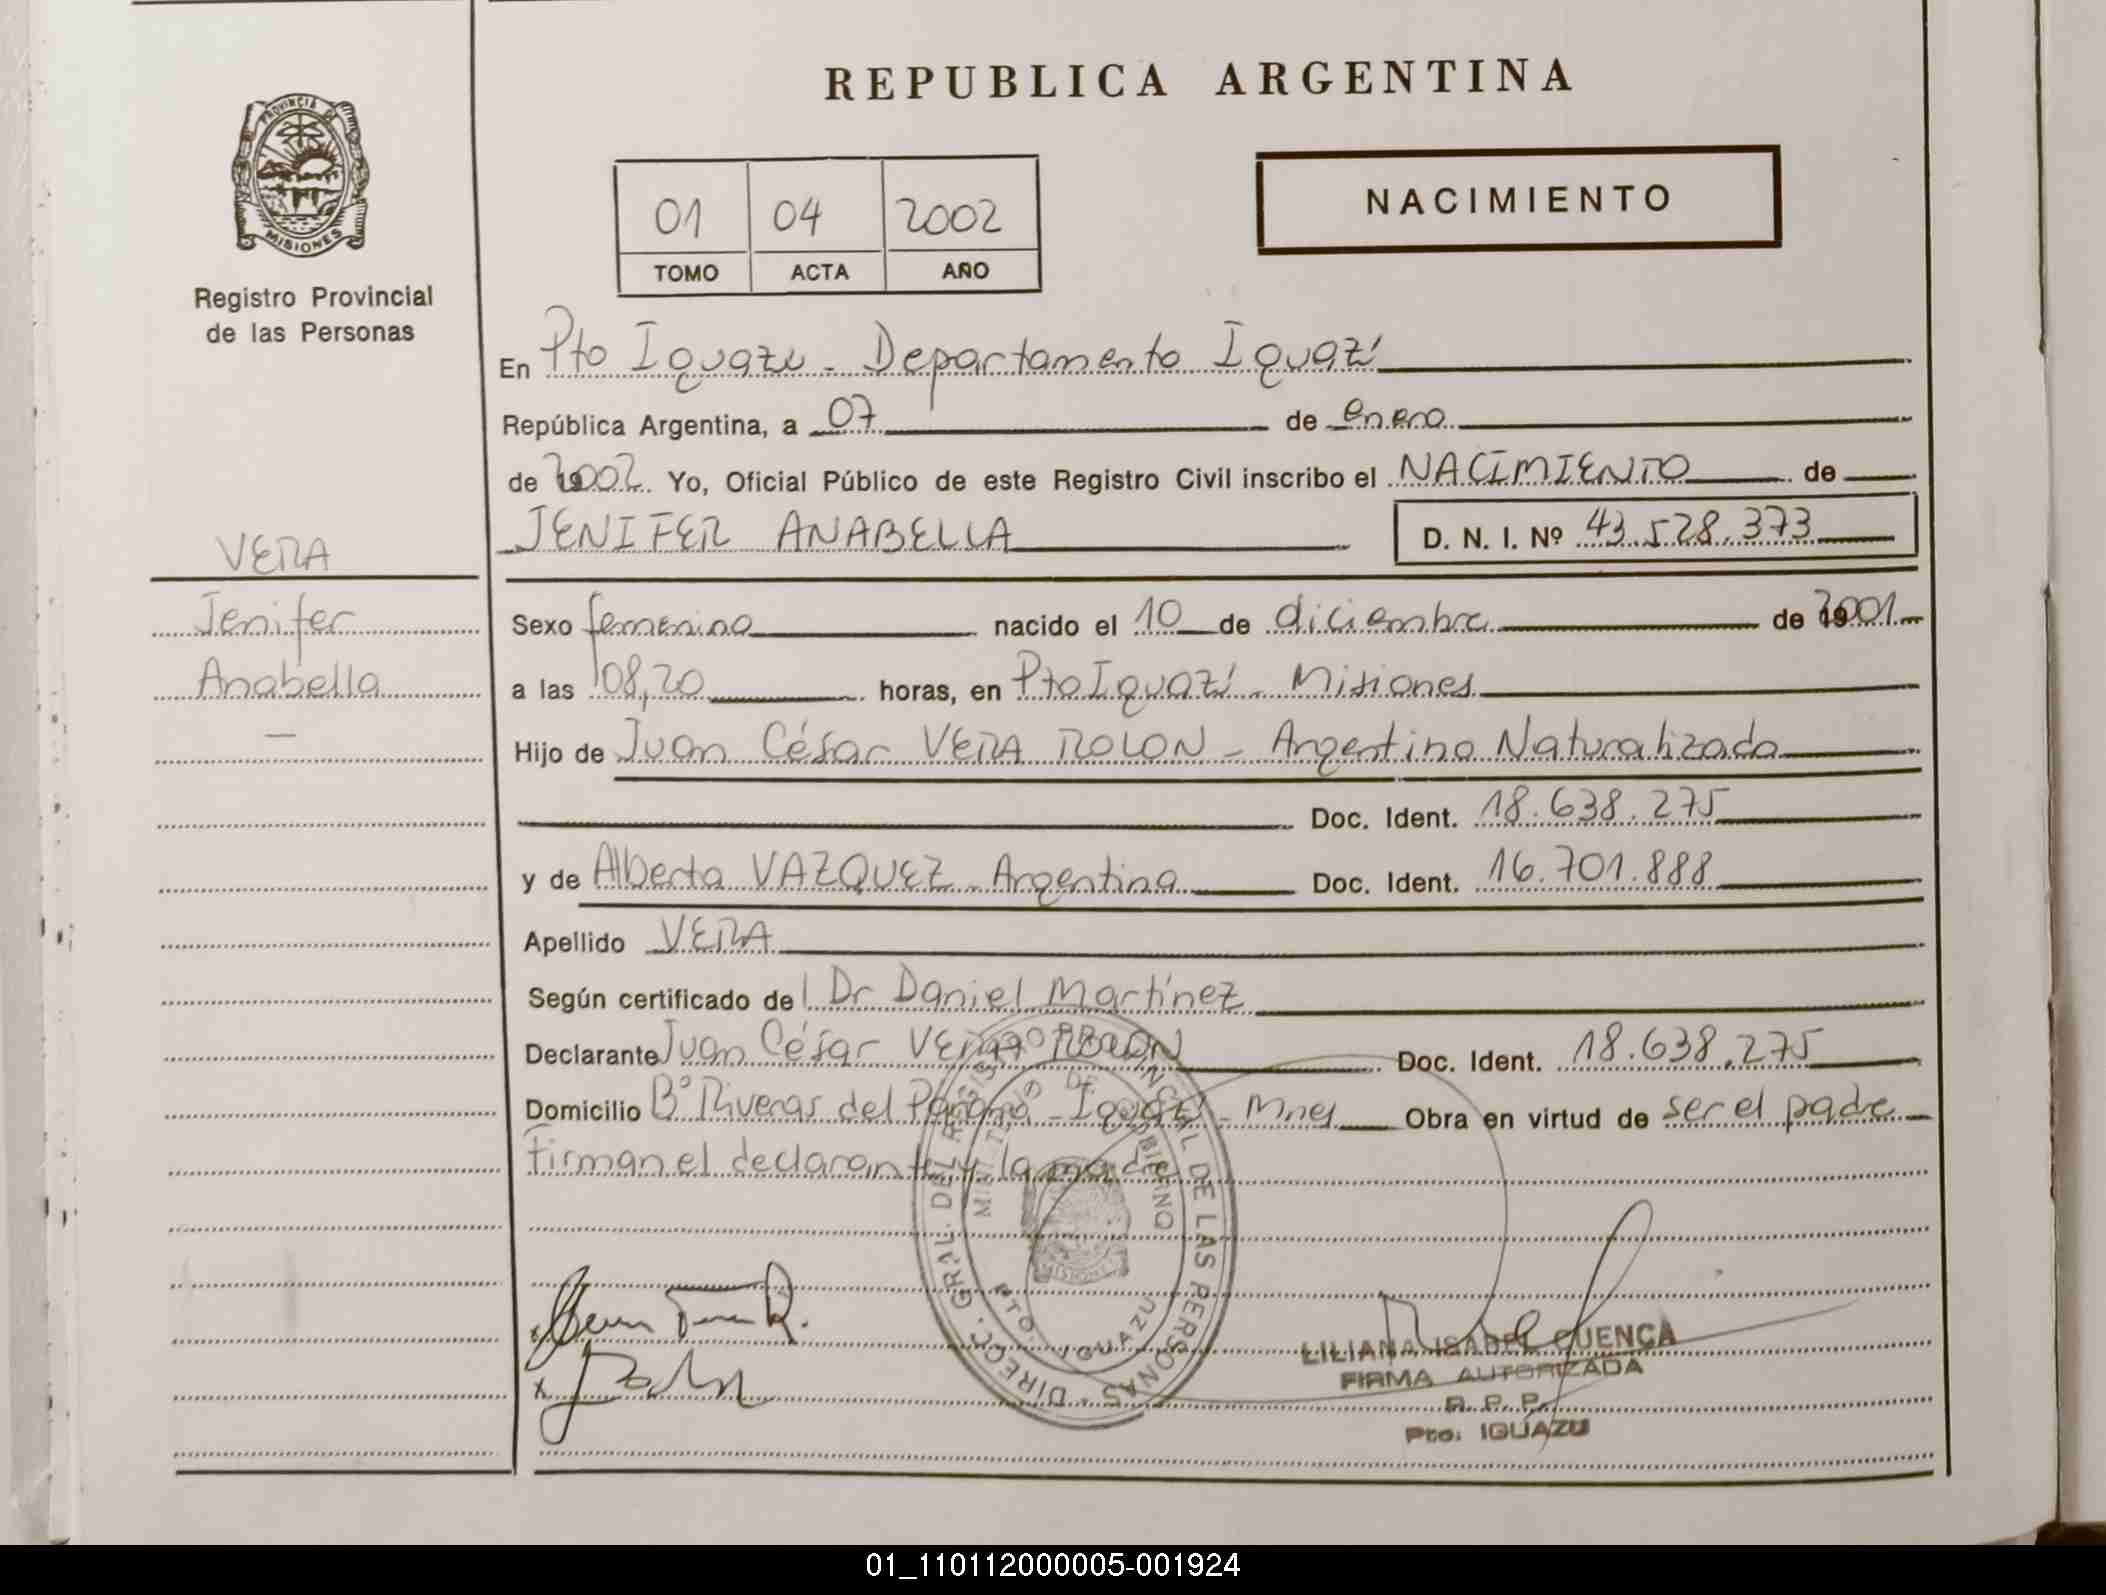 REPUBLICA ARGENTINA
PROVINCIA DE
MISIONES
Registro Provincial
de las Personas
01 04 2002
TOMO ACTA AÑO
NACIMIENTO
En Pto Iguazu - Departamento Iguazú
República Argentina, a 07 de enero
de 2002 Yo, Oficial Público de este Registro Civil inscribo el NACIMIENTO de
JENIFER ANABELLA D. N. I. Nº 43.528.373
VERA
Jenifer
Anabella
Sexo femenino nacido el 10 de diciembre de 2001
a las 08,20 horas, en Pto Iguazú - Misiones
Hijo de Juan César VERA ROLON - Argentino Naturalizado
Doc. Ident. 18.638.275
y de Alberta VAZQUEZ - Argentina Doc. Ident. 16.701.888
Apellido VERA
Según certificado del Dr Daniel Martínez
Declarante Juan César VERA ROLON Doc. Ident. 18.638.275
Domicilio Bº Riveras del Paraná - Iguazú - Mnes Obra en virtud de ser el padre
Firman el declarante y la madre
DIRECC. GRAL. DEL REGISTRO PROVINCIAL DE LAS PERSONAS
MINISTERIO DE GOBIERNO
PTO. IGUAZU
MISIONES
LILIANA ISABEL CUENCA
FIRMA AUTORIZADA
R. P. P.
Pto. IGUAZU
01_110112000005-001924